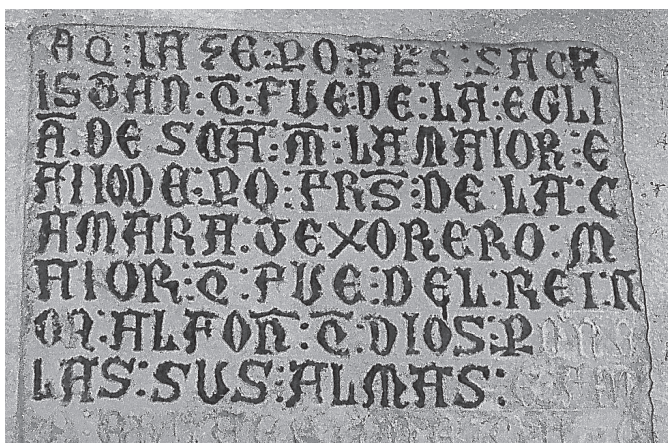 AQ : IASE : PO : FES : SACR
ISTAN : Q̄ : FUE : DE : LA : EGLI
Ā . DE SC̄Ā : M̄ : LA MAIOR : E
FIIO DE : PO : FRS̄ : DE LA : C
AMARA : TEXORERO : M
AIOR : Q̄ : FUE : DEL : REI : N
ON : ALFON̄ : Q̄ : DIOS : P
LAS : SUS : ALMAS :